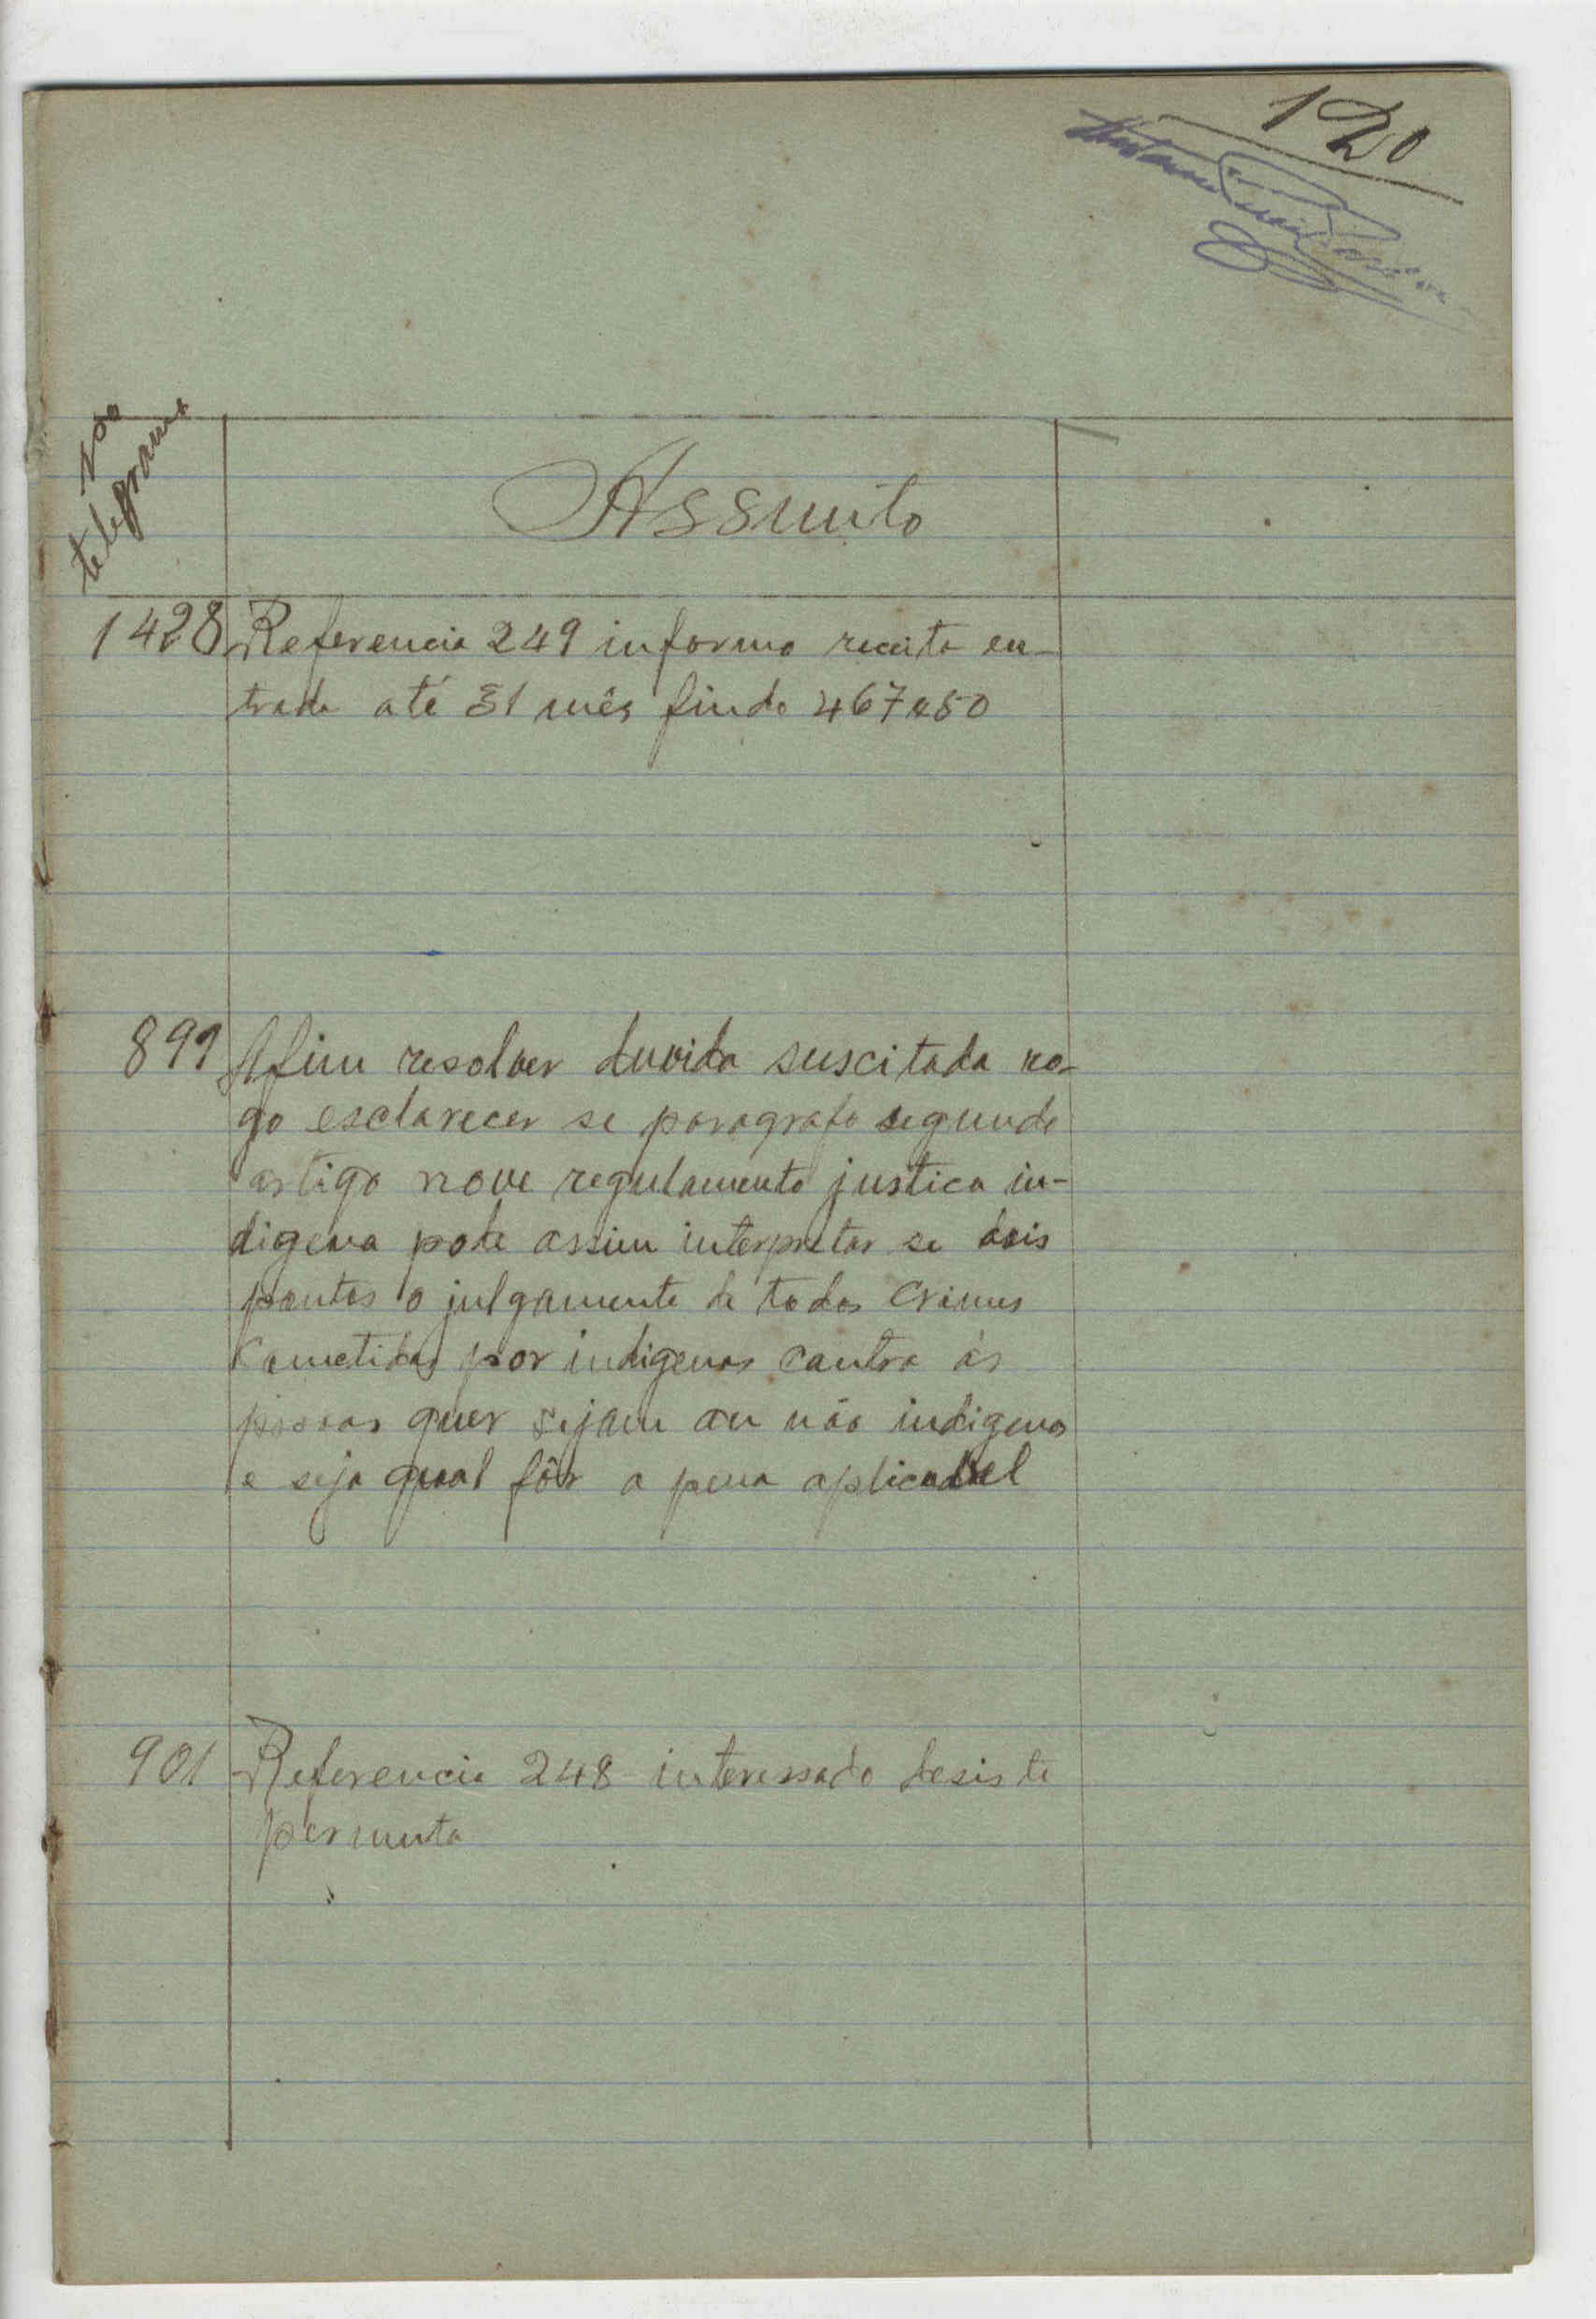 120
telegrama
Assunto
1428 Referencia 249 informo receita en-
trada até 31 mês findo 467$50
899 Afim resolver duvida suscitada ro-
go esclarecer se paragrafo segundo
artigo nove regulamento justica in-
digena pode assim interpretar se dois
pontos o julgamento de todos crimes
cometidos por indigenas contra ás
pessoas quer sejam ou não indigenas
e seja qual fôr a pena aplicavel
901 Referencia 248 interessado desiste
permuta